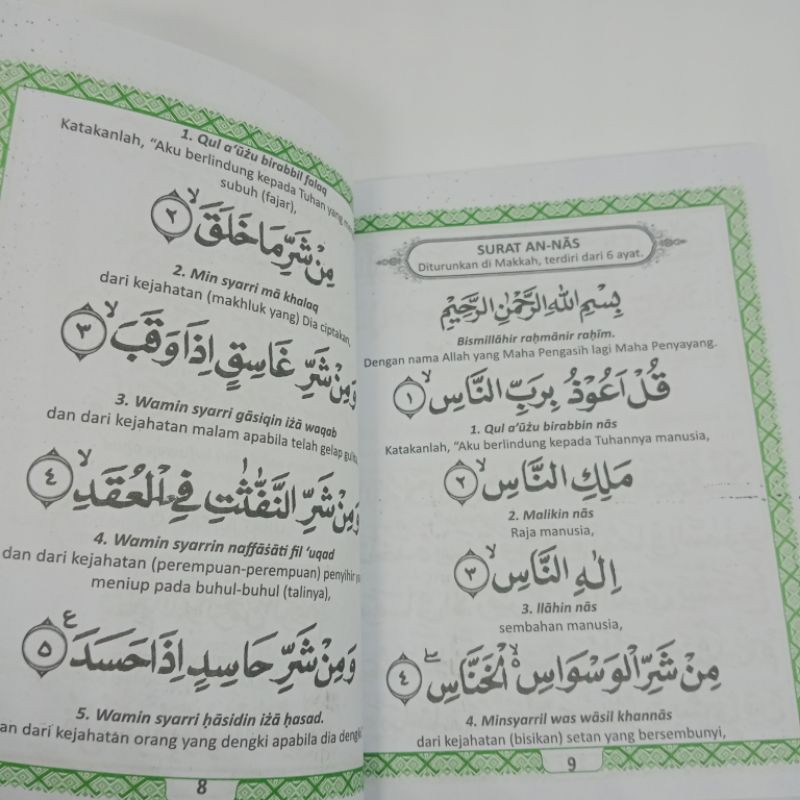 1. Qul a‘ūżu birabbil falaq
Katakanlah, “Aku berlindung kepada Tuhan yang
subuh (fajar),
مِنْ شَرِّ مَا خَلَقَۙ ٢
2. Min syarri mā khalaq
dari kejahatan (makhluk yang) Dia ciptakan,
وَمِنْ شَرِّ غَاسِقٍ اِذَا وَقَبَۙ ٣
3. Wamin syarri gāsiqin iżā waqab
dan dari kejahatan malam apabila telah gelap
وَمِنْ شَرِّ النَّفّٰثٰتِ فِى الْعُقَدِۙ ٤
4. Wamin syarrin naffāṡāti fil ‘uqad
dan dari kejahatan (perempuan-perempuan) penyihir
meniup pada buhul-buhul (talinya),
وَمِنْ شَرِّ حَاسِدٍ اِذَا حَسَدَ ࣖ ٥
5. Wamin syarri ḥāsidin iżā ḥasad.
dari kejahatan orang yang dengki apabila dia
8
SURAT AN-NĀS
Diturunkan di Makkah, terdiri dari 6 ayat.
بِسْمِ اللّٰهِ الرَّحْمٰنِ الرَّحِيْمِ
Bismillāhir raḥmānir raḥīm.
Dengan nama Allah yang Maha Pengasih lagi Maha Penyayang.
قُلْ اَعُوْذُ بِرَبِّ النَّاسِۙ ١
1. Qul a‘ūżu birabbin nās
Katakanlah, “Aku berlindung kepada Tuhannya manusia,
مَلِكِ النَّاسِۙ ٢
2. Malikin nās
Raja manusia,
اِلٰهِ النَّاسِۙ ٣
3. Ilāhin nās
sembahan manusia,
مِنْ شَرِّ الْوَسْوَاسِ ەۙ الْخَنَّاسِۖ ٤
4. Minsyarril was wāsil khannās
dari kejahatan (bisikan) setan yang bersembunyi,
9